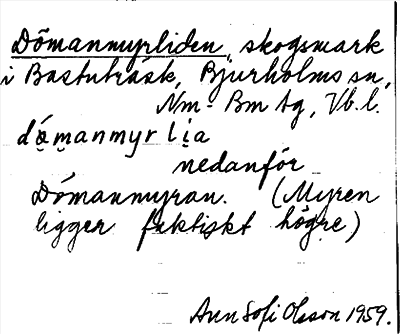 Dömanmyrliden, skogsmark
i Bastuträsk, Bjurholms sn,
Nm-Bm tg, Vb.l.
dó̤manmyrli̤a
nedanför
Dömanmyran. (Myren
ligger faktiskt högre)
Ann Sofi Olsson 1959.